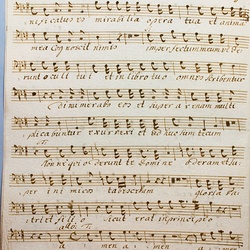 nificatus es mirabilia opera tua et anima
mea cognoscit nimis imperfectum meum vi de
runt oculi tui et in libro tuo omnes scribentur
Dinumerabo eos et super arenam multi
plicabuntur exurrexi et ad huc sum tecum
Nonne qui oderunt te domine oderam et su
per inimicos tabescebam gloria Pa
tri et filio sicut erat in principio
a men a men